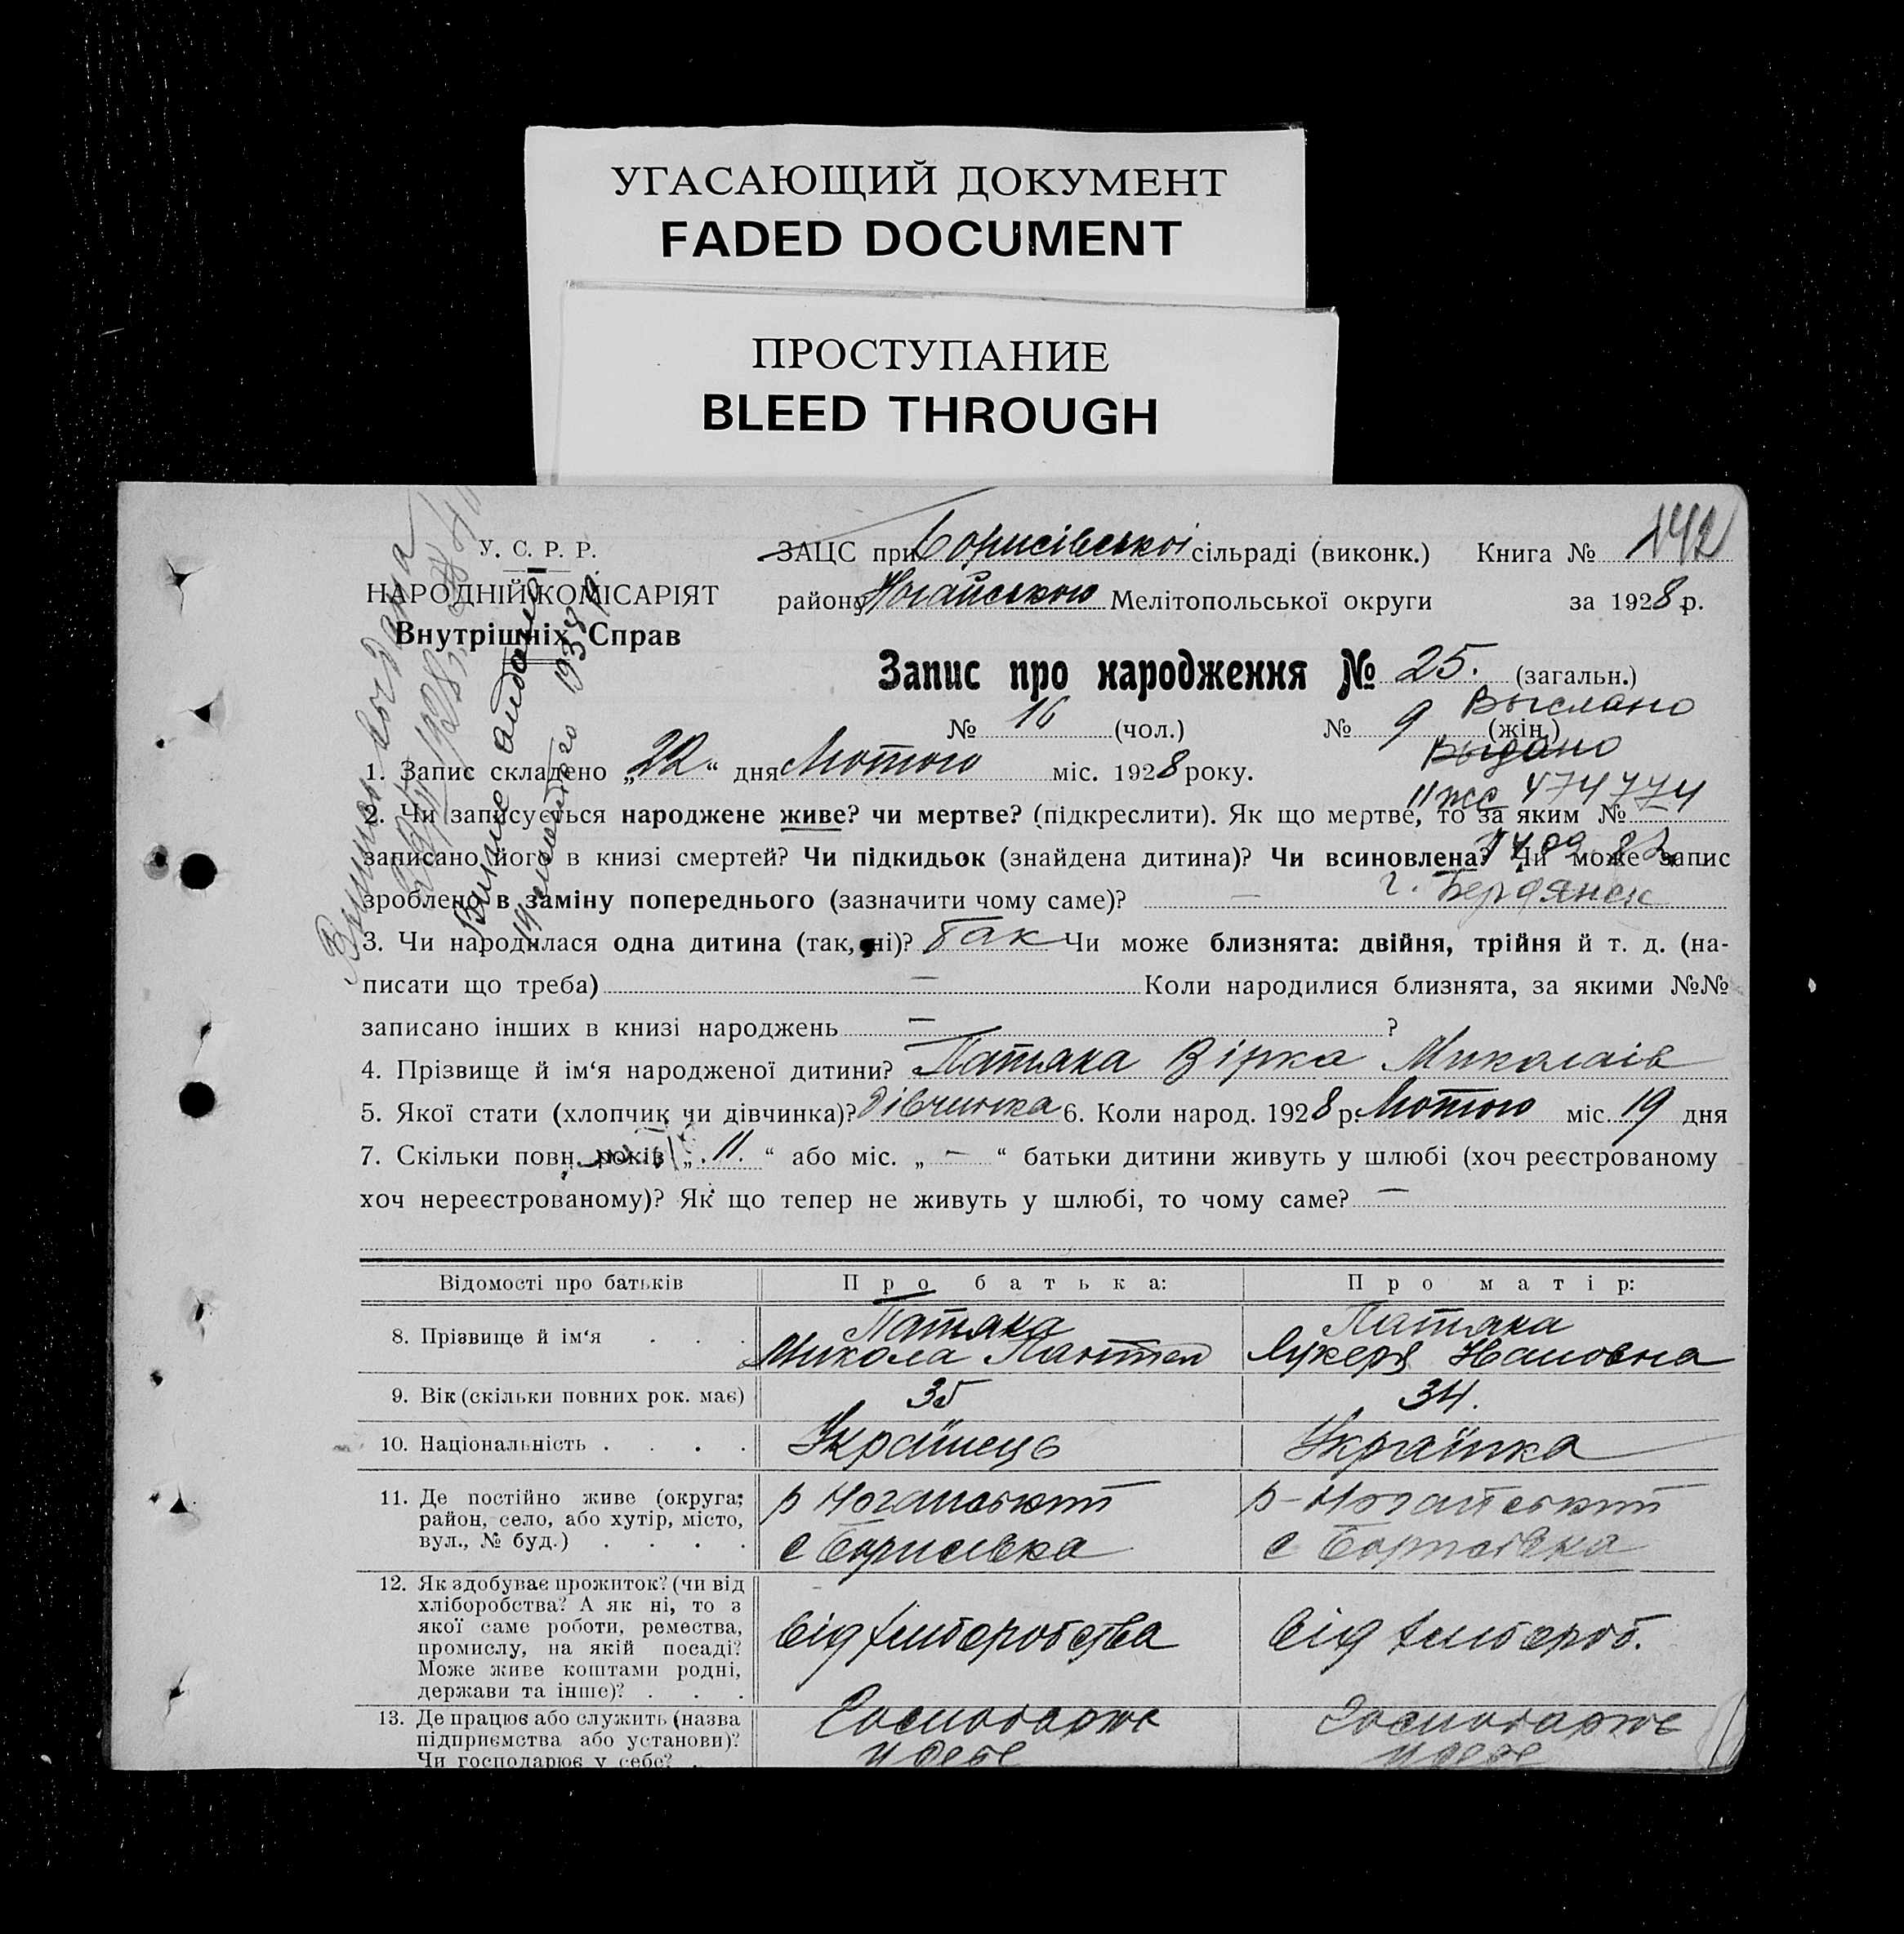 УГАСАЮЩИЙ ДОКУМЕНТ
FADED DOCUMENT
ПРОСТУПАНИЕ
BLEED THROUGH
У. С. Р. Р.
НАРОДНІЙ КОМІСАРІЯТ
Внутрішніх Справ
ЗАЦС при Борисівської сільраді (виконк.) Книга № 142
району Ногайського Мелітопольської округи за 1928 р.
Запис про народження № 25. (загальн.)
№ 16 (чол.) № 9 (жін.)
Выслано
Выдано
1. Запис складено „22“ дня Лютого міс. 1928 року.
II ЖС 474774
2. Чи записується народжене живе? чи мертве? (підкреслити). Як що мертве, то за яким №
записано його в книзі смертей? Чи підкидьок (знайдена дитина)? Чи всиновлена? Чи може запис
г. Бердянск
зроблено в заміну попереднього (зазначити чому саме)? —
3. Чи народилася одна дитина (так, ні)? Так Чи може близнята: двійня, трійня й т. д. (на-
писати що треба) — Коли народилися близнята, за якими №№
записано інших в книзі народжень — ?
4. Прізвище й ім‘я народженої дитини? Патяка Вірка Миколаїв
5. Якої стати (хлопчик чи дівчинка)? дівчинка 6. Коли народ. 1928 р. Лютого міс. 19 дня
7. Скільки повн. років „11.“ або міс. „—“ батьки дитини живуть у шлюбі (хоч реєстрованому
хоч нереєстрованому)? Як що тепер не живуть у шлюбі, то чому саме? —
Відомості про батьків Про батька: Про матір:
8. Прізвище й ім‘я . . . Патяка Микола Пантел Патяка Лукеря Івановна
9. Вік (скільки повних рок. має) 35 34.
10. Національність . . . . Українець Українка
11. Де постійно живе (округа, р Ногайський р-Ногайський
район, село, або хутір, місто, с Борисівка с Борисівка
вул., № буд.) . . . .
12. Як здобуває прожиток? (чи від
хліборобства? А як ні, то з
якої саме роботи, ремества, від хліборобства від хлібороб.
промислу, на якій посаді?
Може живе коштами родні,
держави та інше)? . . .
13. Де працює або служить (назва Господарює Господарює
підприємства або установи)? у себе у себе
Чи господарює у себе? .